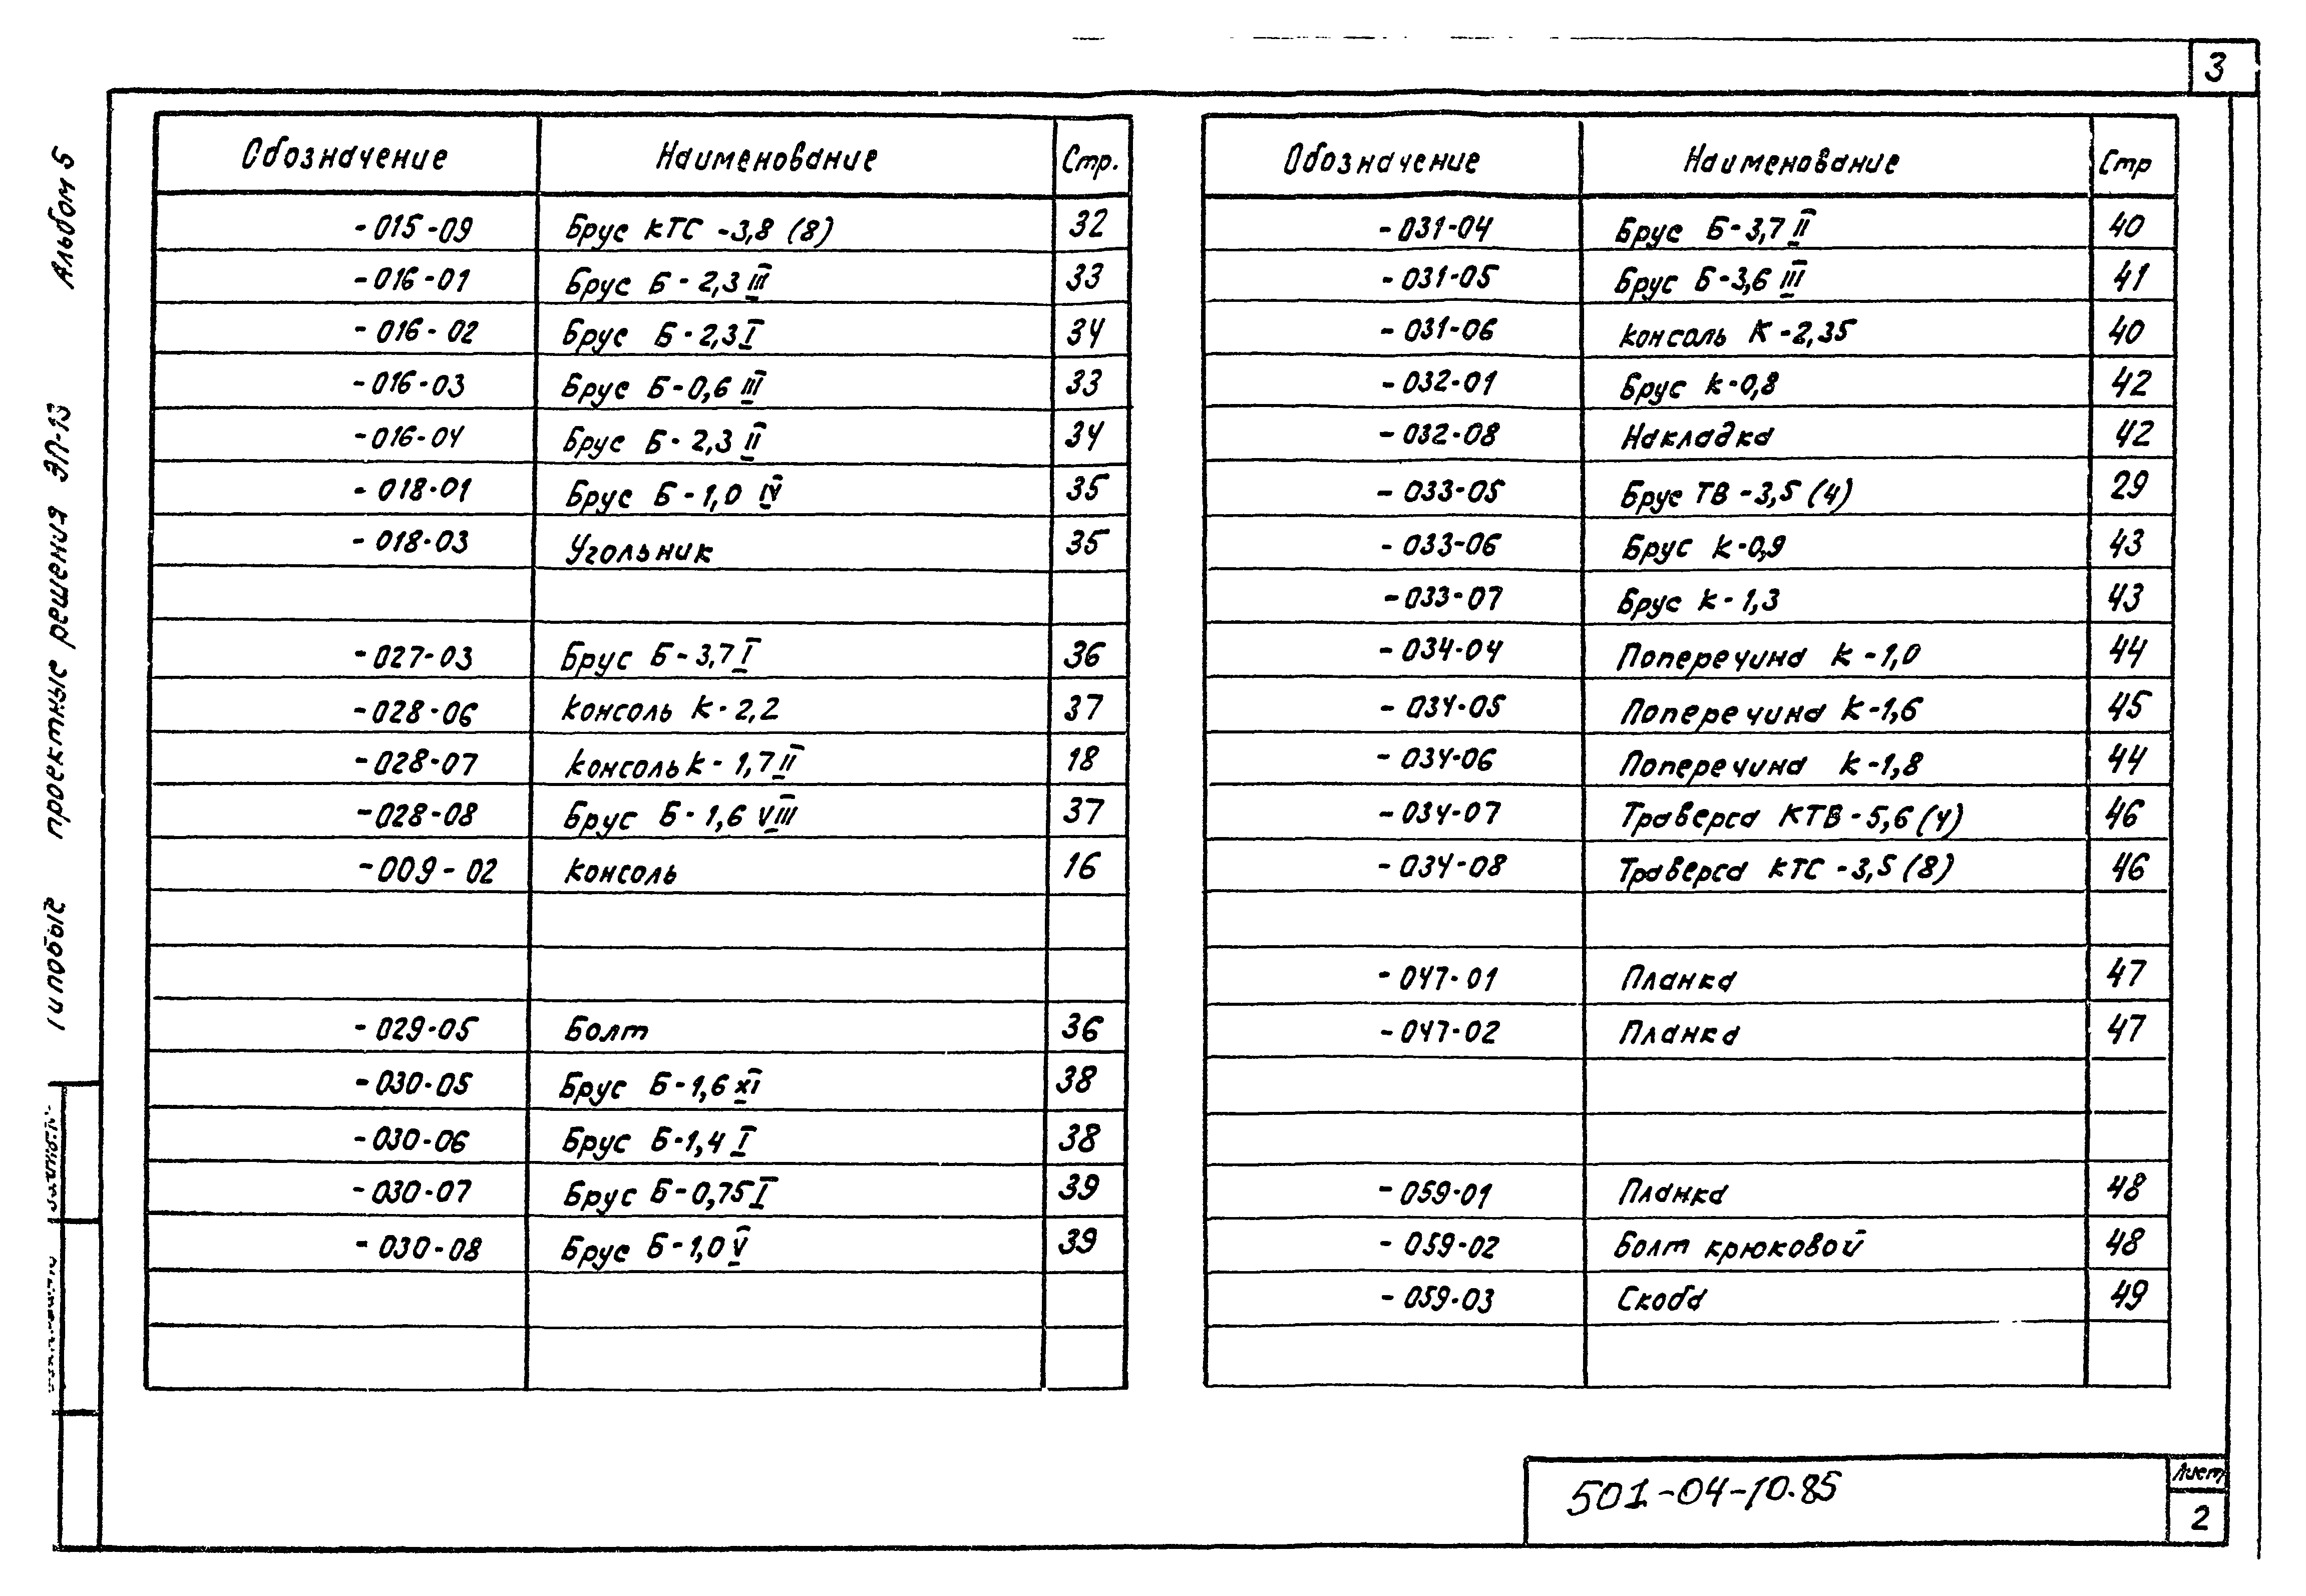 3
Альбом 5
проектные решения ЭП-13
Обозначение Наименование Стр.
-015-09 Брус КТС-3,8 (8) 32
-016-01 Брус Б-2,3 III 33
-016-02 Брус Б-2,3 I 34
-016-03 Брус Б-0,6 III 33
-016-04 Брус Б-2,3 II 34
-018-01 Брус Б-1,0 IV 35
-018-03 Угольник 35
-027-03 Брус Б-3,7 I 36
-028-06 Консоль К-2,2 37
-028-07 Консоль К-1,7 II 18
-028-08 Брус Б-1,6 VIII 37
-009-02 Консоль 16
-029-05 Болт 36
-030-05 Брус Б-1,6 XI 38
-030-06 Брус Б-1,4 I 38
-030-07 Брус Б-0,75 I 39
-030-08 Брус Б-1,0 V 39
Обозначение Наименование Стр
-031-04 Брус Б-3,7 II 40
-031-05 Брус Б-3,6 III 41
-031-06 Консоль К-2,35 40
-032-01 Брус К-0,8 42
-032-08 Накладка 42
-033-05 Брус ТВ-3,5 (4) 29
-033-06 Брус К-0,9 43
-033-07 Брус К-1,3 43
-034-04 Поперечина К-1,0 44
-034-05 Поперечина К-1,6 45
-034-06 Поперечина К-1,8 44
-034-07 Траверса КТВ-5,6 (4) 46
-034-08 Траверса КТС-3,5 (8) 46
-047-01 Планка 47
-047-02 Планка 47
-059-01 Планка 48
-059-02 Болт крюковой 48
-059-03 Скоба 49
501-04-10.85
Лист
2